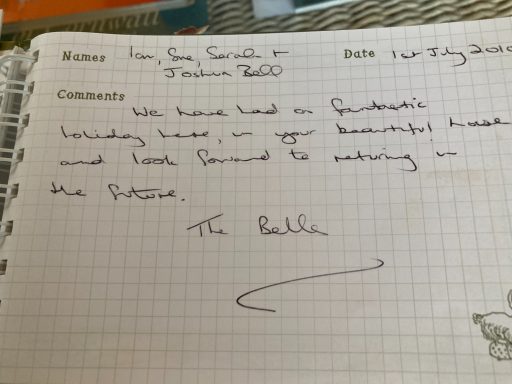 Names Ian, Sue, Sarah +
Joshua Bell
Date 1st July 2010
Comments
We have had a fantastic
holiday here, in your beautiful house
and look forward to returing in
the future.
The Bells